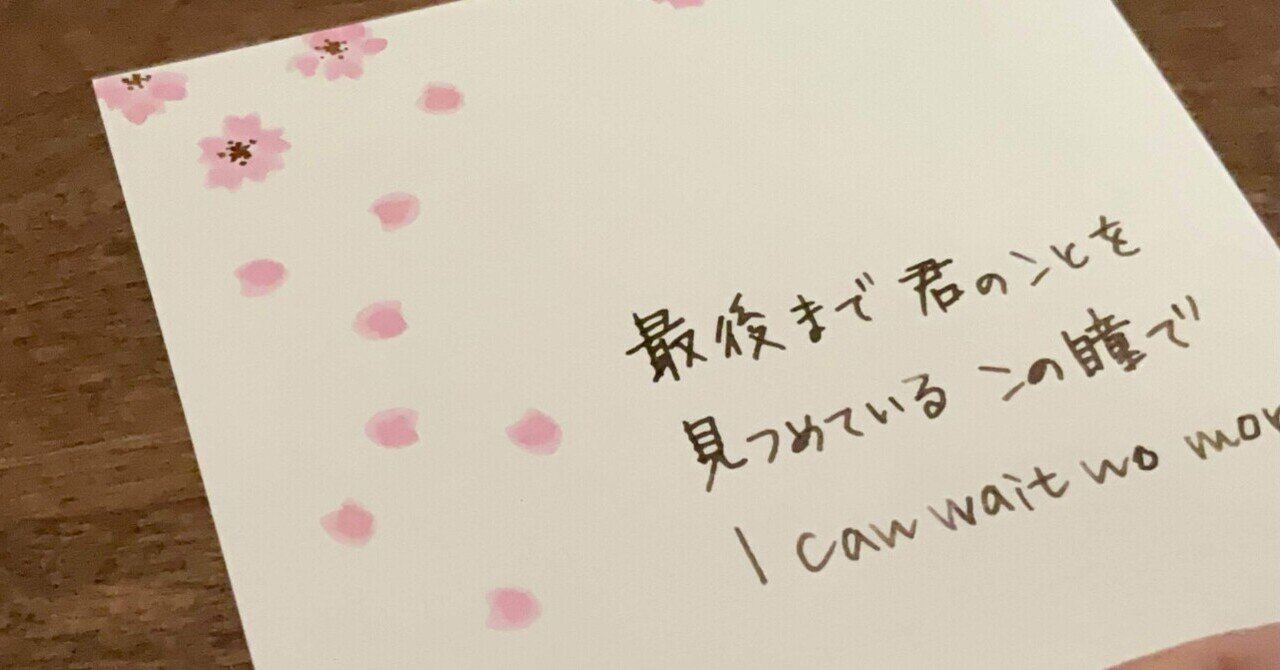 最後まで君のことを
見つめている この瞳で
I can wait no mor